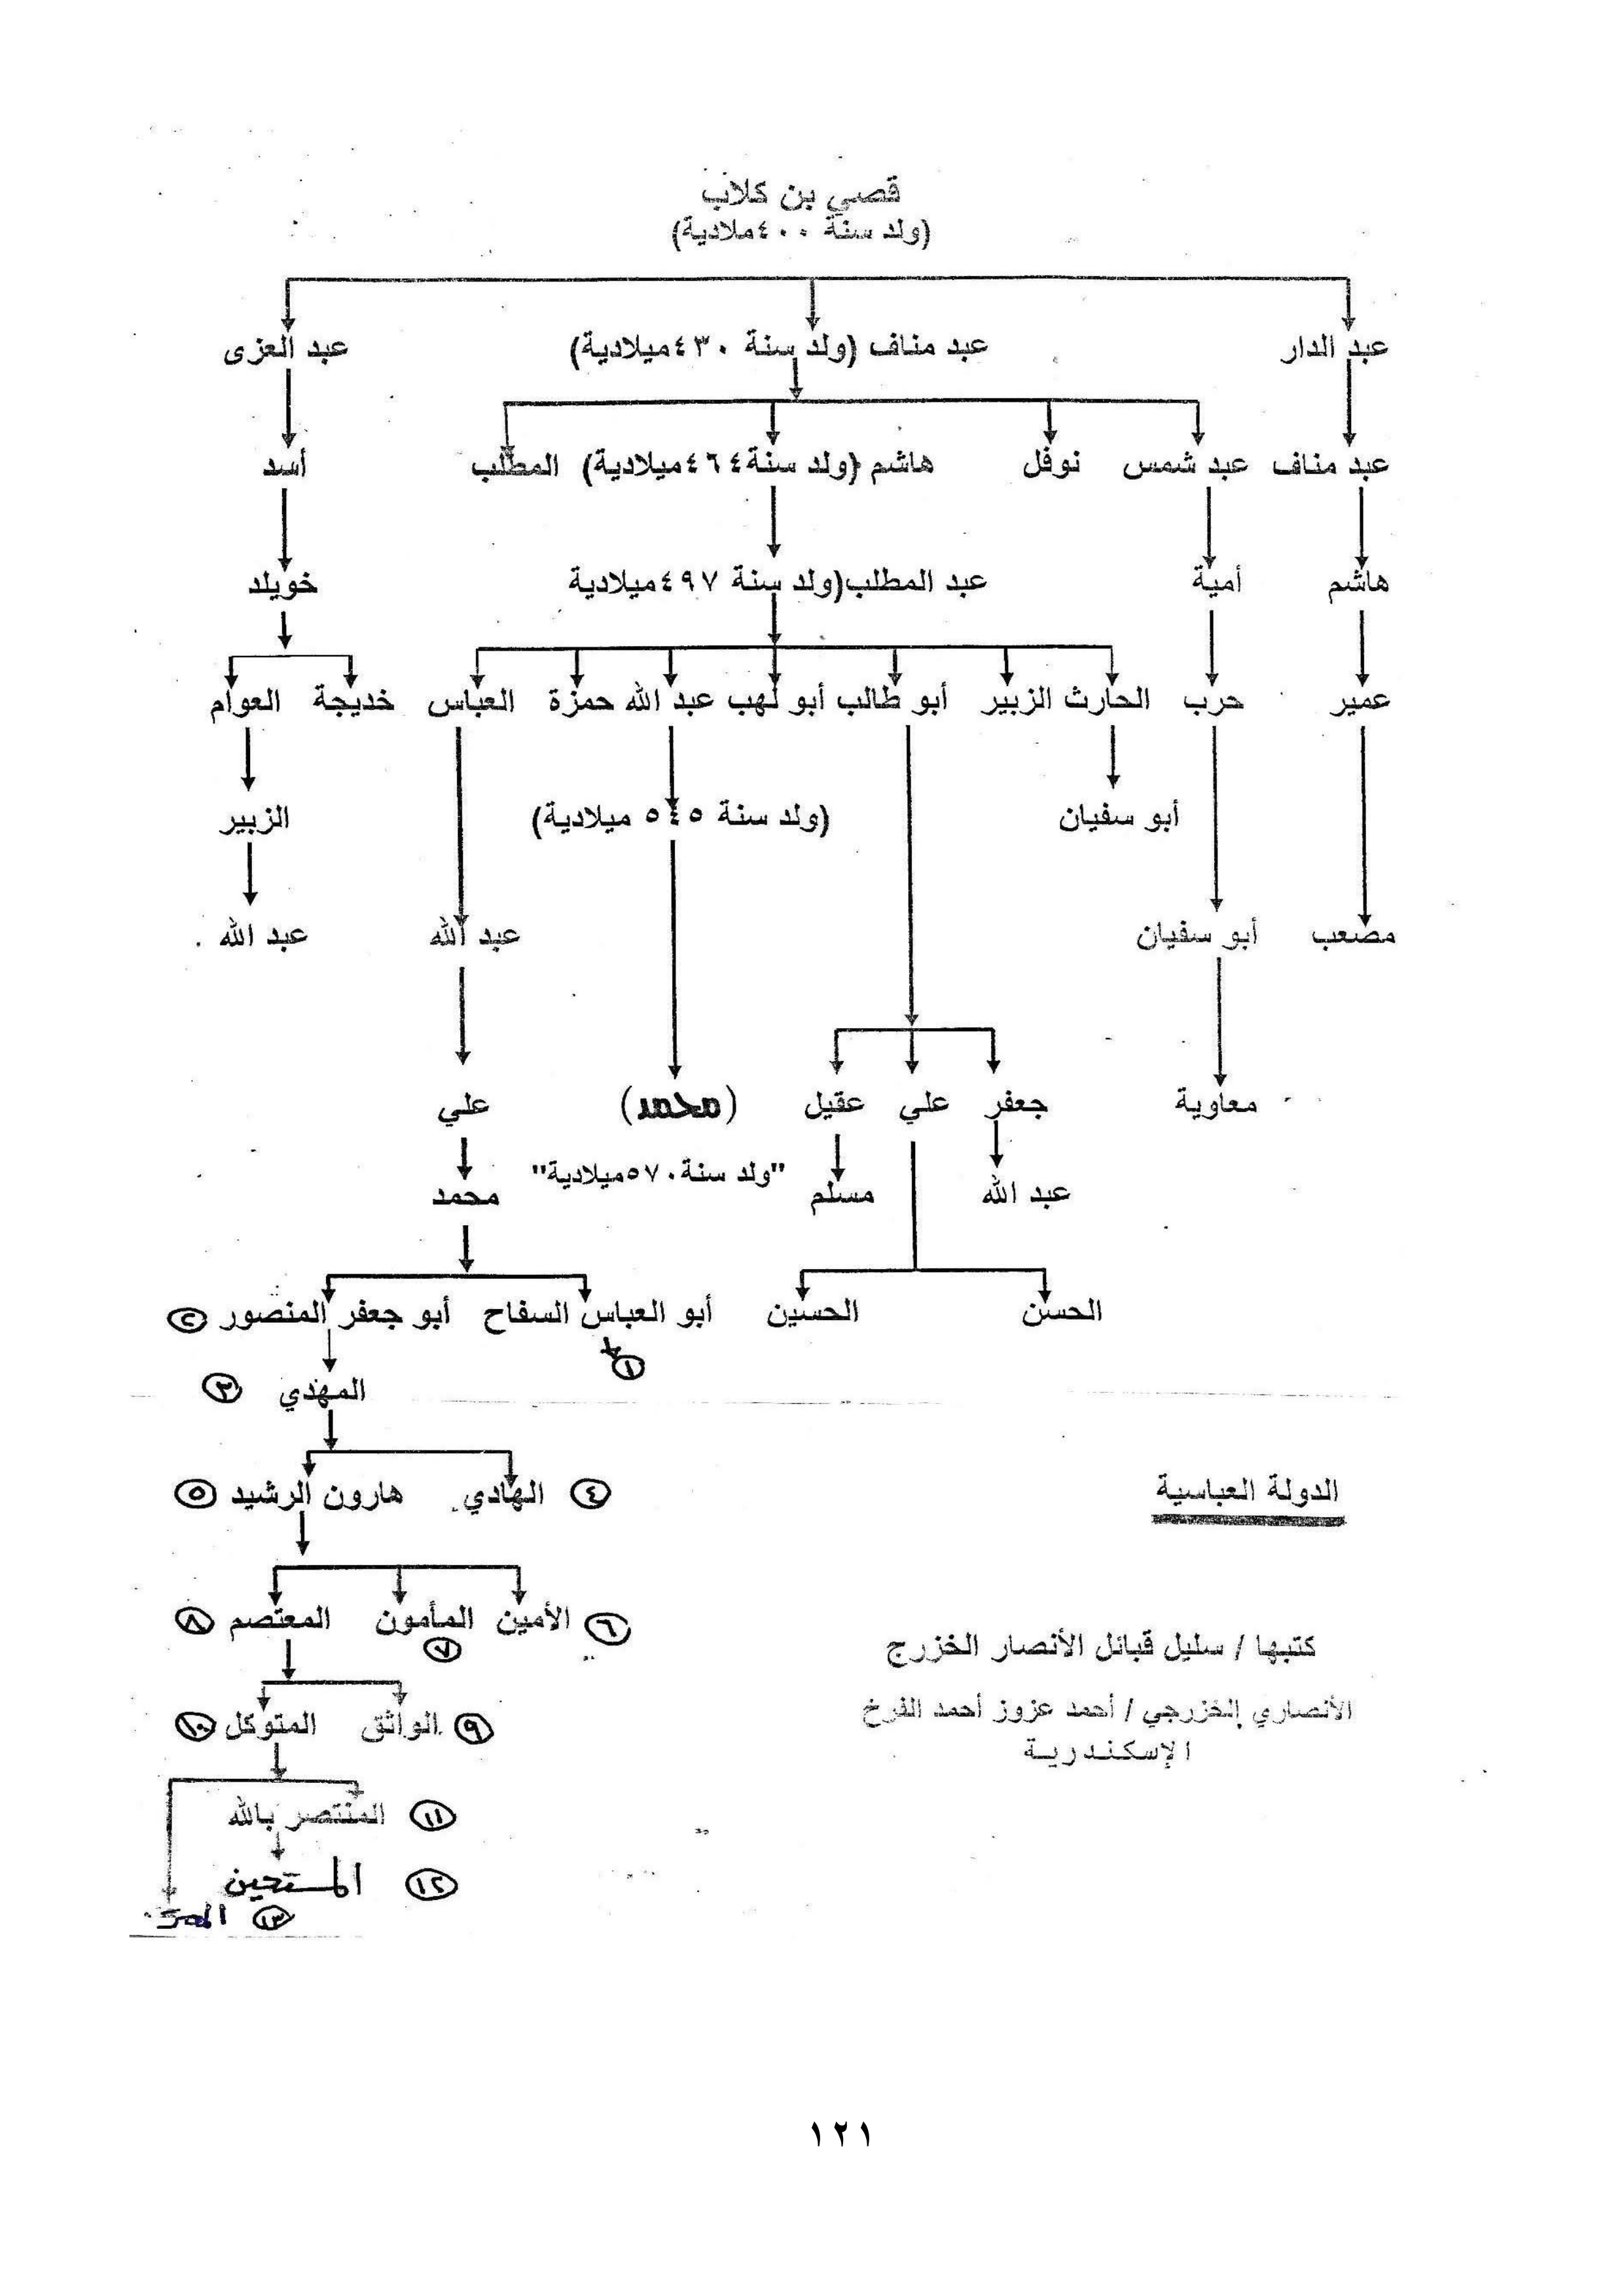 قصي بن كلاب
(ولد سنة ٤٠٠ملادية)
عبد الدار عبد مناف (ولد سنة ٤٣٠ميلادية) عبد العزى
عبد مناف عبد شمس نوفل هاشم (ولد سنة٤٦٤ميلادية) المطلب أسد
هاشم أمية عبد المطلب(ولد سنة ٤٩٧ميلادية خويلد
عمير حرب الحارث الزبير أبو طالب أبو لهب عبد الله حمزة العباس خديجة العوام
أبو سفيان (ولد سنة ٥٤٥ ميلادية) الزبير
مصعب أبو سفيان عبد الله عبد الله
معاوية جعفر علي عقيل (محمد) علي
"ولد سنة٥٧٠ميلادية"
عبد الله مسلم محمد
الحسن الحسين أبو العباس السفاح أبو جعفر المنصور ٢
١
المهدي ٣
٤ الهادي هارون الرشيد ٥
الدولة العباسية
٦ الأمين المأمون المعتصم ٨
٧
كتبها / سليل قبائل الأنصار الخزرج
الأنصاري الخزرجي / أحمد عزوز أحمد الفرخ
الإسكندرية
٩ الواثق المتوكل ١٠
١١ المنتصر بالله
١٢ المستعين
١٣
١٢١